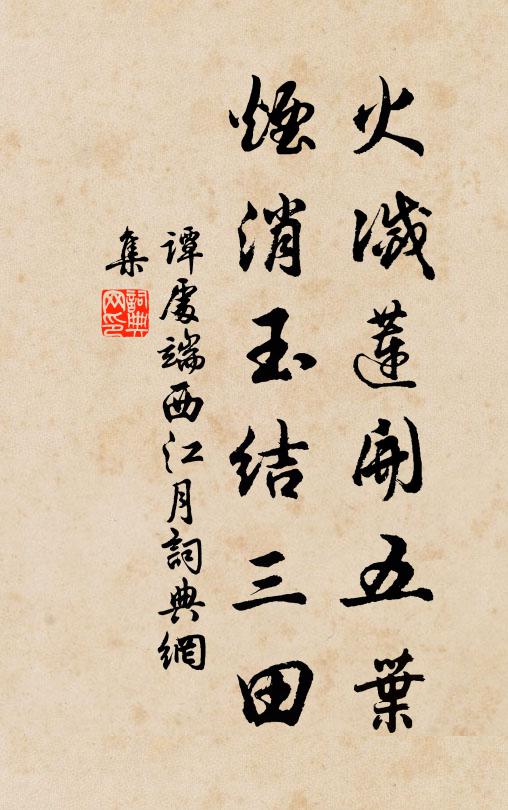 火滅蓮開五葉
煙消玉結三田
譚處端西江月詞典網
集
詞典網印